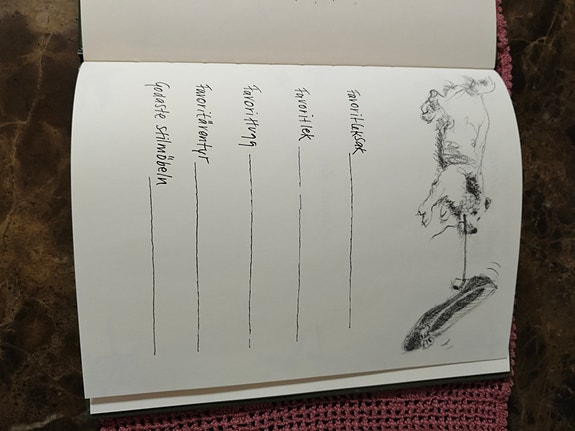 Favoritleksak
Favoritlek
Favorittugg
Favoritäventyr
Godaste stilmöbeln